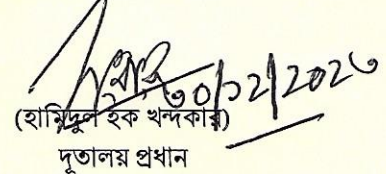 ৩০/১২/২০২৩
(হামিদুল হক খন্দকার)
দূতালয় প্রধান